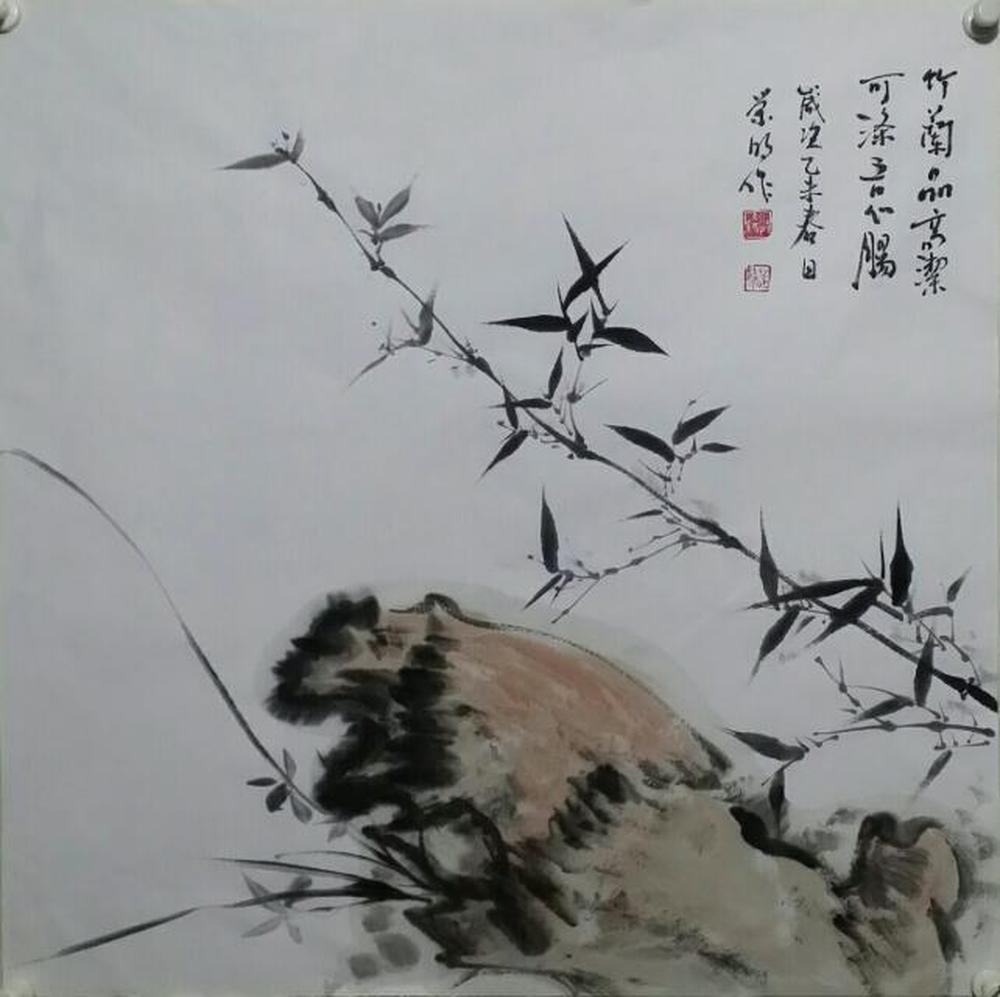 竹蘭品高潔
可滌吾心腸
歲次乙未春日
榮明作